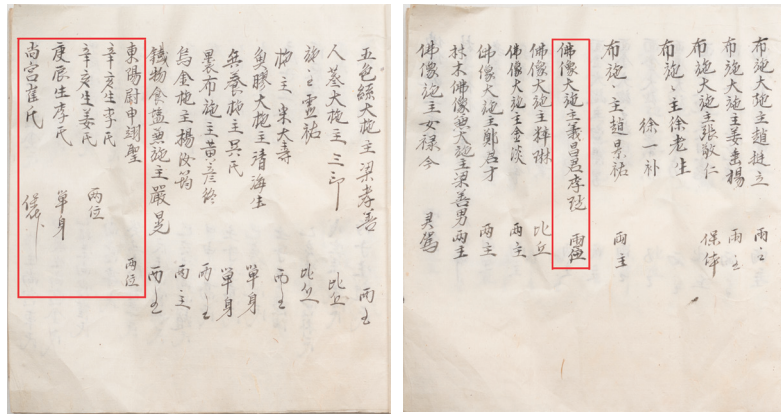 布施大施主趙挺立 兩主
布施大施主姜岳楊 兩主
布施大施主張敬仁 保体
布施〻主徐老生
徐一补
布施〻主趙景祐 兩主
佛像大施主義昌君李珖 兩位
佛像大施主釋琳 比丘
佛像大施主金淡 兩主
佛像大施主鄭名才 兩主
林木佛像無大施主梁善男兩主
佛像施主女禄今 灵駕
五色絲大施主梁孝善 兩主
人蔘大施主三印 比丘
施主灵祐 比丘
施主朱大寺 兩主
魚膠大施主清海生 單身
無養施主吳氏 單身
裹布施主黄彦終 兩主
烏金施主楊汝筠 兩主
鐵物食塩無施主嚴晃 兩主
東陽尉申翊聖 兩位
辛亥生李氏
辛亥生姜氏 兩位
庚辰生李氏 單身
尚宮崔氏 保体